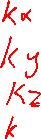 kx
ky
kz
k